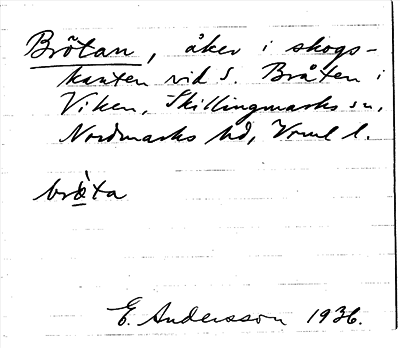 Brötan, åker i skogs-
kanten vid S. Bråten i
Viken, Skillingmarks sn,
Nordmarks hd, Vrml l.
bròta
E. Andersson 1936.